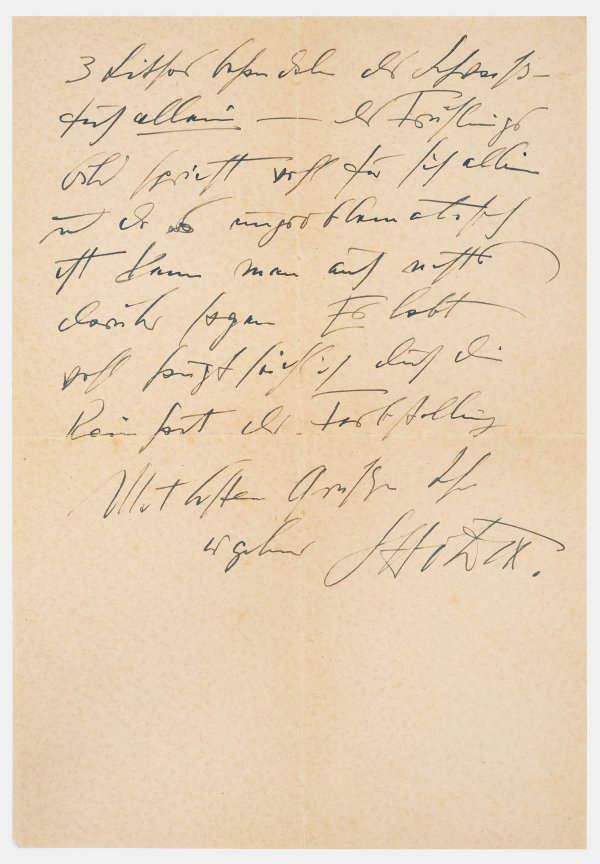 3 der Schweiß-
tuch allein — Frühlings
bild spricht wohl für sich allein
und da es unproblematisch
ist kann man auch nichts
darüber sagen Er lebt
wohl hauptsächlich durch die
Reinheit der Farbstellung
Mit besten Grüßen Ihr
ergebener